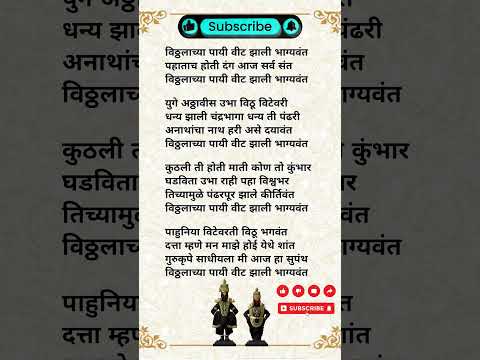 Subscribe
विठ्ठलाच्या पायी वीट झाली भाग्यवंत
पहाताच होती दंग आज सर्व संत
विठ्ठलाच्या पायी वीट झाली भाग्यवंत
युगे अठ्ठावीस उभा विठू विटेवरी
धन्य झाली चंद्रभागा धन्य ती पंढरी
अनाथांचा नाथ हरी असे दयावंत
विठ्ठलाच्या पायी वीट झाली भाग्यवंत
कुठली ती होती माती कोण तो कुंभार
घडविता उभा राही पहा विश्वभर
तिच्यामुळे पंढरपूर झाले कीर्तिवंत
विठ्ठलाच्या पायी वीट झाली भाग्यवंत
पाहुनिया विटेवरती विठू भगवंत
दत्ता म्हणे मन माझे होई येथे शांत
गुरुकृपे साधीयला मी आज हा सुपंथ
विठ्ठलाच्या पायी वीट झाली भाग्यवंत
SUBSCRIBE